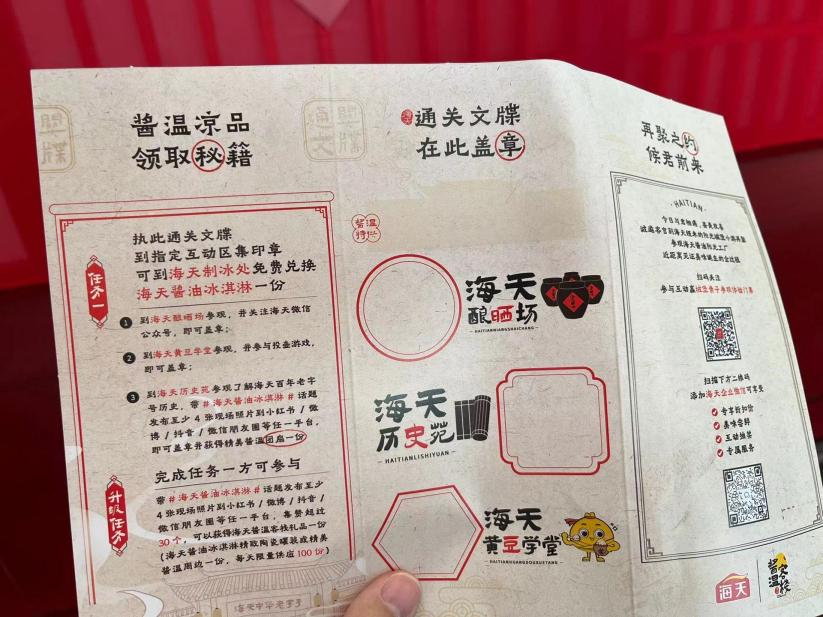 酱温凉品
领取秘籍
任务一
执此通关文牒
到指定互动区集印章
可到海天制冰处免费兑换
海天酱油冰淇淋一份
1 到海天酿晒场参观，并关注海天微信
公众号，即可盖章；
2 到海天黄豆学堂参观，并参与投壶游戏，
即可盖章；
3 到海天历史苑参观了解海天百年老字
号历史，带#海天酱油冰淇淋#话题
发布至少4张现场照片到小红书/微
博/抖音/微信朋友圈等任一平台，
即可盖章并获得精美酱温团扇一份
完成任务一方可参与
升级任务
带#海天酱油冰淇淋#话题发布至少
4张现场照片到小红书/微博/抖音/
微信朋友圈等任一平台，集赞超过
30个，可以获得海天酱温客栈礼品一份
(海天酱油冰淇淋精致陶瓷罐装或精美
酱温周边一份，每天限量供应100份)
海天中华老字号
通关文牒
在此盖章
酱温
特供
海天
酿晒场
HAITIANNIANGSHAICHANG
海天
历史苑
HAITIANLISHIYUAN
海天
黄豆学堂
HAITIANHUANGDOUXUETANG
再聚之约
候君前来
·HAITIAN·
参观海天酱油阳光工厂
近距离见证美味诞生的全过程
扫码关注
扫描下方二维码
添加海天企业微信可享受
专享折扣价
美味尝鲜
互动抽奖
专属服务
海天
酱温客栈